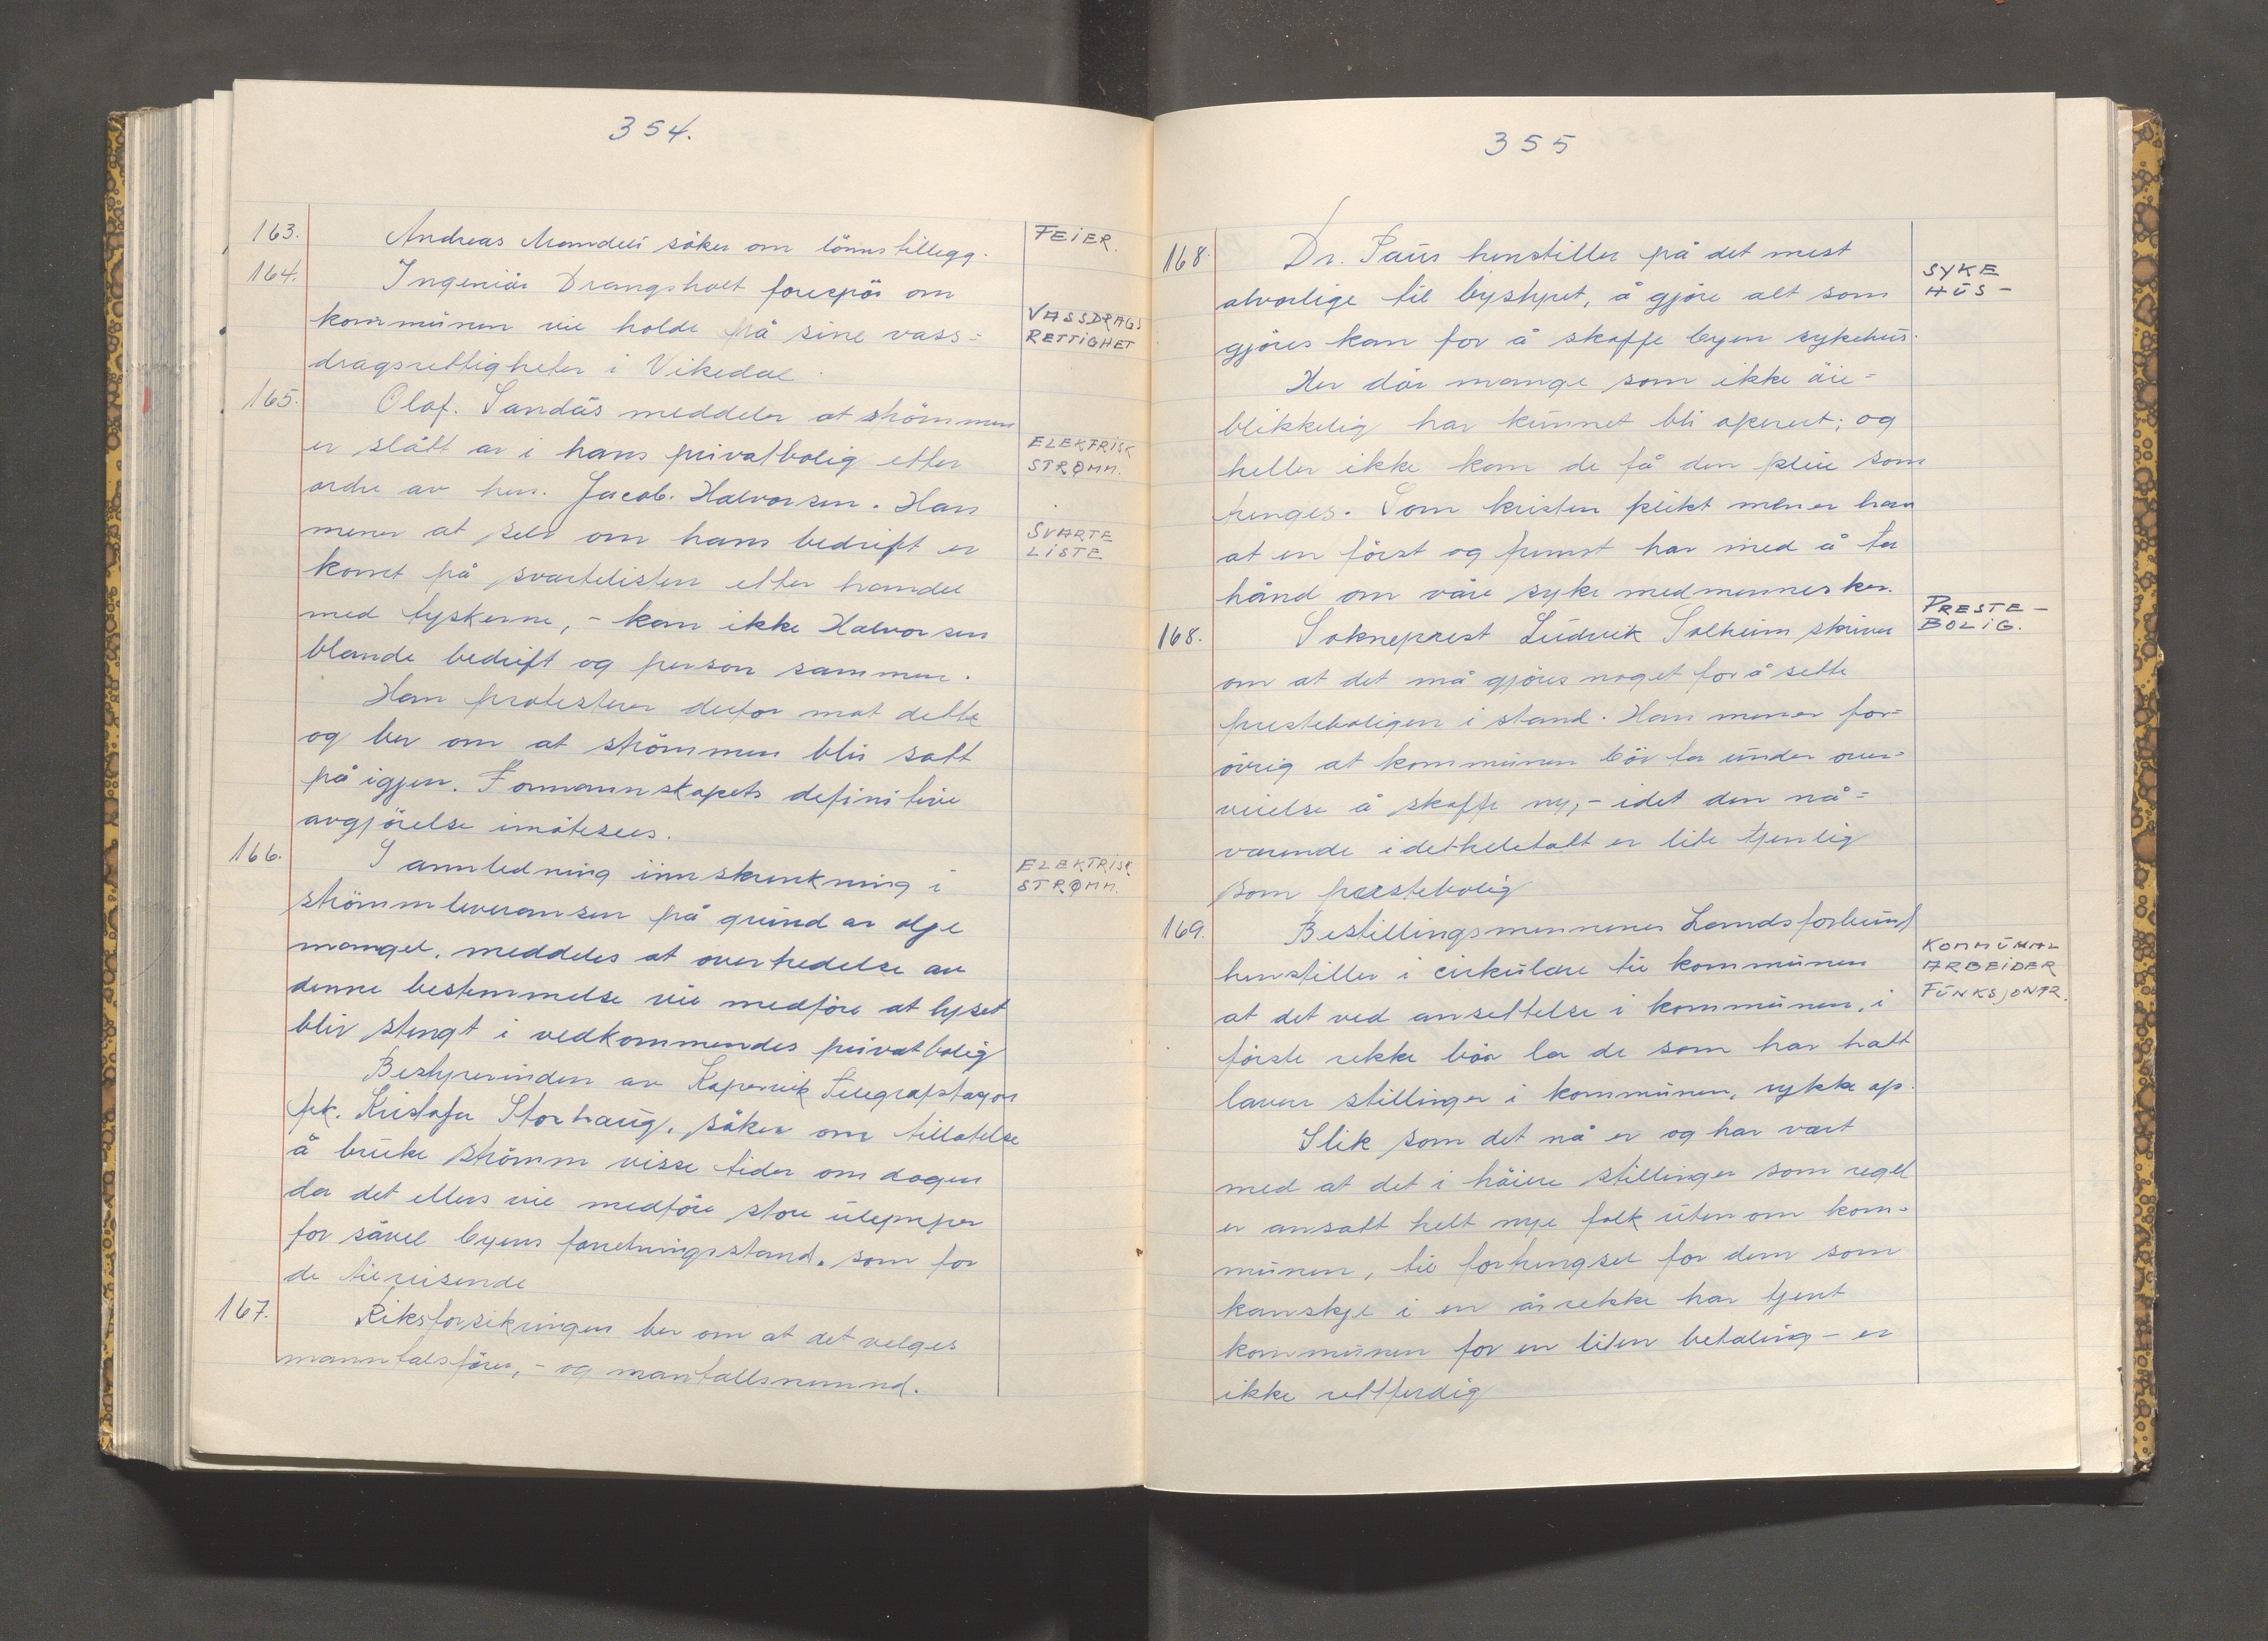 354.
163. Andreas Mandeli söker om lönnstillegg. FEIER.
164. Ingeniör Drangsholt forespör om
kommunen vil holde på sine vass= VASSDRAGS
dragsrettigheter i Vikedal. RETTIGHET
165. Olaf. Sandås meddeler at strömmen
er slått av i hans privatbolig etter ELEKTRISK
ordre av hrr. Jacob. Halvorsen. Han STRØMM.
mener at selv om hans bedrift er SVARTE
komet på svartelisten etter handel LISTE
med tyskerne, - kan ikke Halvorsen
blande bedrift og person sammen.
Han protesterer derfor mot dette
og ber om at strömmen blir satt
på igjen. Formannskapets definitive
avgjörelse imötesees.
166. I annledning innskrenkning i ELEKTRISK
strömmleveransen på grund av olje STRØMM.
mangel, meddeles at overtredelse av
denne bestemmelse vil medföre at lyset
blir stengt i vedkommendes privatbolig
Bestyrerinden av Kopervik Telegrafstasjon
frk. Kristofa Storhaug, söker om tillatelse
å bruke strömm visse tider om dagen
da det ellers vil medföre store ulemper
for såvel byens forretningsstand. som for
de tilreisende
167. Riksforsikringen ber om at det velges
manntalsförer, - og mantallsnemnd.
355
168. Dr. Paus henstiller på det mest
alvorlige til bystyret, å gjöre alt som SYKE
gjöres kan for å skaffe byen sykehus. HUS-
Her dör mange som ikke öie=
blikkelig har kunnet bli operert; og
heller ikke kan de få den pleie som
trenges. Som kristen plikt mener han
at en först og fremst har med å ta
hånd om våre syke medmennesker.
168. Sokneprest Ludvik Solheim skriver PRESTE-
om at det må gjöres noget for å sette BOLIG.
presteboligen i stand. Han mener for=
övrig at kommunen bör ta under over=
veielse å skaffe ny, - idet den nå=
værende idetheletatt er lite tjenlig
som prestebolig
169. Bestillingsmennenes Landsforbund
henstiller i cirkulære til kommunen KOMMUNAL
at det ved ansettelse i kommunen, i ARBEIDER
förste rekke bör la de som har hatt FUNKSJONÆR.
lavere stillinger i kommunen, rykke op.
Slik som det nå er og har vært
med at det i höiere stillinger som regel
er ansatt helt nye folk utenom kom=
munen, til fortrengsel for dem som
kanskje i en årrekke har tjent
kommunen for en liten betaling - er
ikke rettferdig